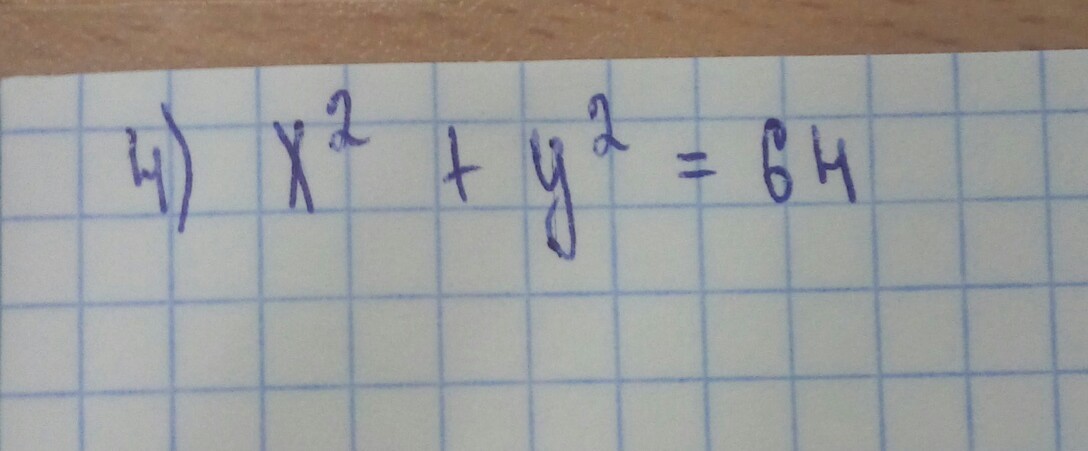 4) x² + y² = 64